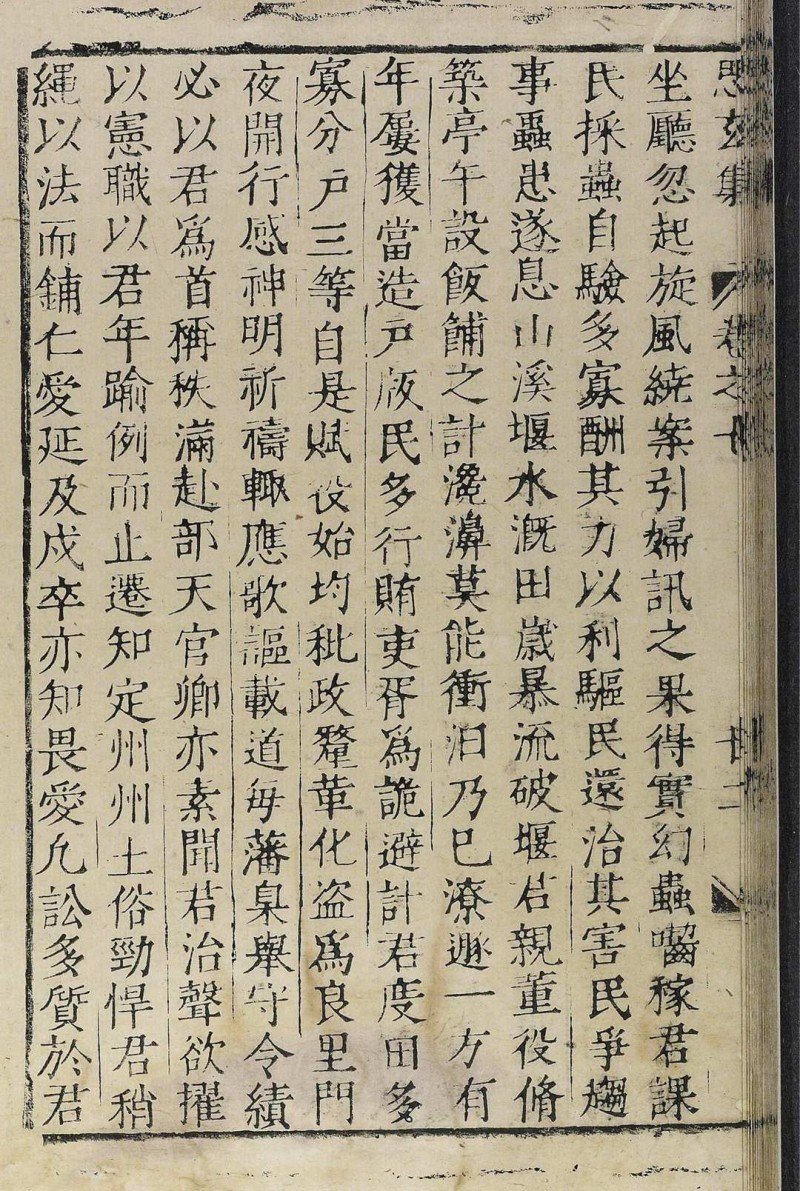 思玄集 卷之十 廿二
坐廳忽起旋風繞案引婦訊之果得實幻蟲嚙稼君課
民採蟲自驗多寡酬其力以利驅民還治其害民爭趨
事蟲患遂息山溪堰水漑田歲暴流破堰君親董役脩
築亭午設飯餔之計澆濞莫能衝汩乃已潦遯一方有
年屢獲當造戶版民多行賄吏胥爲詭避計君度田多
寡分戶三等自是賦役始均秕政釐革化盗爲良里門
夜開行感神明祈禱輙應歌謳載道每藩臬舉守令績
必以君爲首稱秩滿赴部天官卿亦素聞君治聲欲擢
以憲職以君年踰例而止遷知定州州土俗勁悍君稍
繩以法而鋪仁愛延及戍卒亦知畏愛九訟多質於君